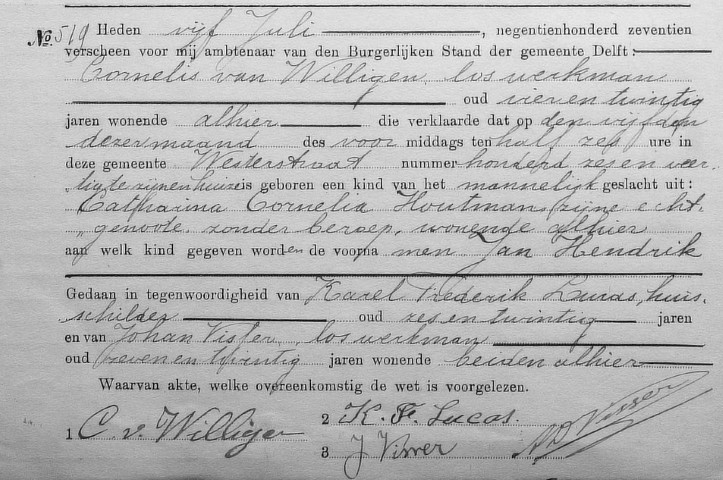 No. 519 Heden vijf Juli, negentienhonderd zeventien
verscheen voor mij ambtenaar van den Burgerlijken Stand der gemeente Delft:
Cornelis van Willigen, los werkman
oud vier en twintig
jaren wonende alhier die verklaarde dat op den vijfden
dezer maand des voor middags ten half zes ure in
deze gemeente Westerstraat nummer honderd zes en veer-
"tig te zijnen huize is geboren een kind van het mannelijk geslacht uit:
Catharina Cornelia Houtman, zijne echt-
"genoote, zonder beroep, wonende alhier
aan welk kind gegeven worden de voornamen Jan Hendrik
Gedaan in tegenwoordigheid van Karel Frederik Lucas, huis-
schilder oud zes en twintig jaren
en van Johan Visser, los werkman
oud zeven en twintig jaren wonende beiden alhier
Waarvan akte, welke overeenkomstig de wet is voorgelezen.
1 C. v. Willigen
2 K. F. Lucas.
3 J Visser
Visser